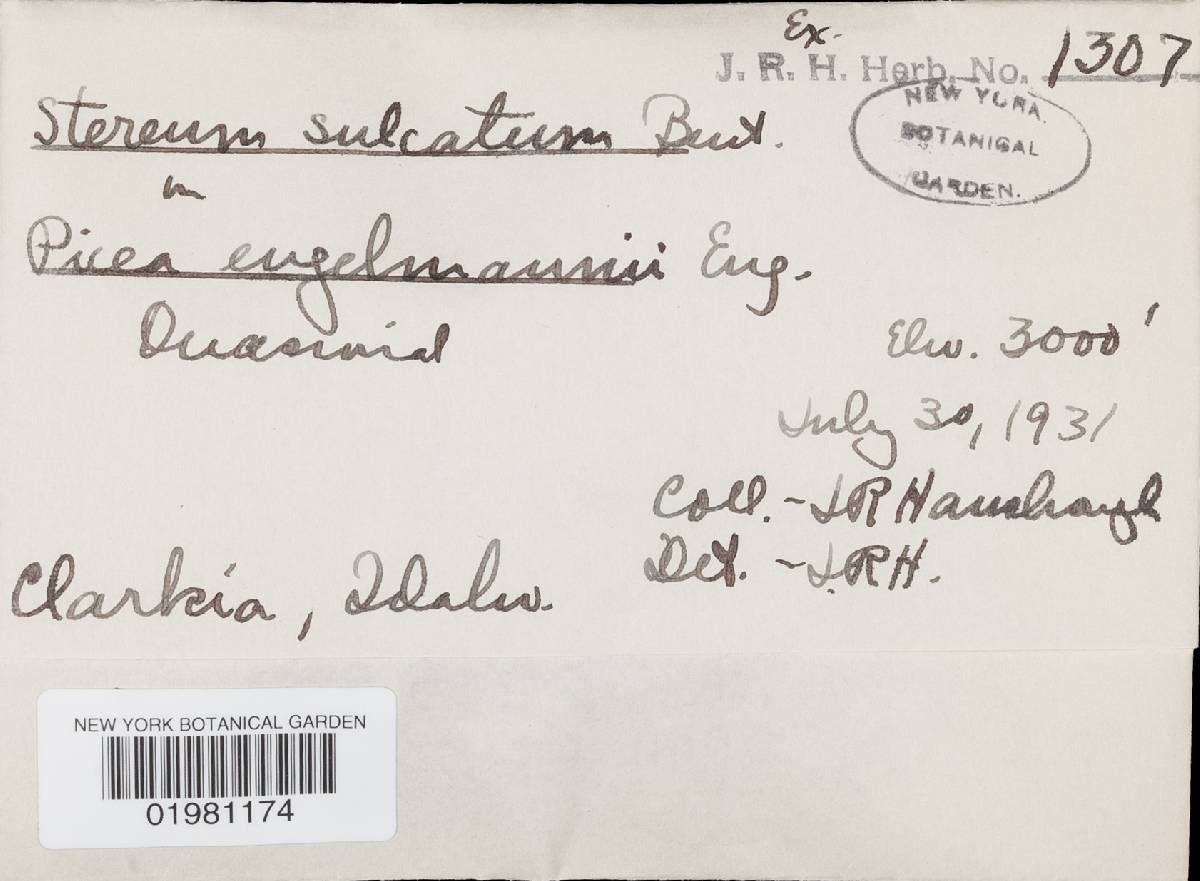 Ex.
J. R. H. Herb. No. 1307
NEW YORK
BOTANICAL
GARDEN.
Stereum sulcatum Burt.
on
Picea engelmannii Eng.
Elev. 3000'
July 30, 1931
Coll. - JR Hansbrough
Det. - J.R.H.
Clarkia, Idaho.
NEW YORK BOTANICAL GARDEN
01981174